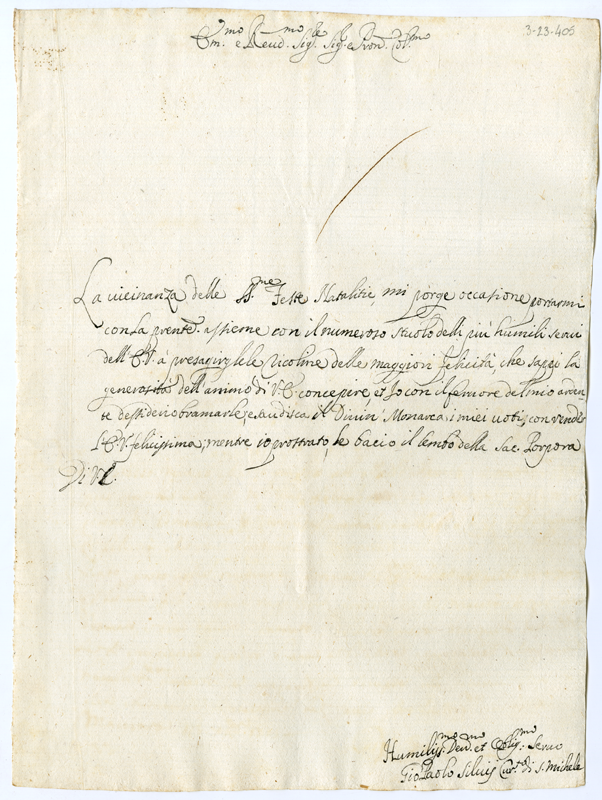 3-23-405
Em.mo e Reud.mo Sig.re Sig.r e Pron. Col.mo
La uicinanza delle SS.me Feste Natalitie, mi porge occasione portarmi
con la pnente assieme con il numeroso stuolo delli più humili serui
dell' E.V. à presagirgle le il colme delle maggiori felicità, che sappi la
generosità dell' animo di V.E. concepire, et Io con il feruore del mio arden
te dessiderio bramarle; esaudisca il Diuin' Monarca i miei uoti, con render
l' E.V. felicissima, mentre io prostrato, le bacio il lembo della Sac. Porpora
Di V.E.
Humiliss.mo Deu.mo et Oblig.mo Seruo
Gio. Paolo Siluij Cur.to di S. Michele